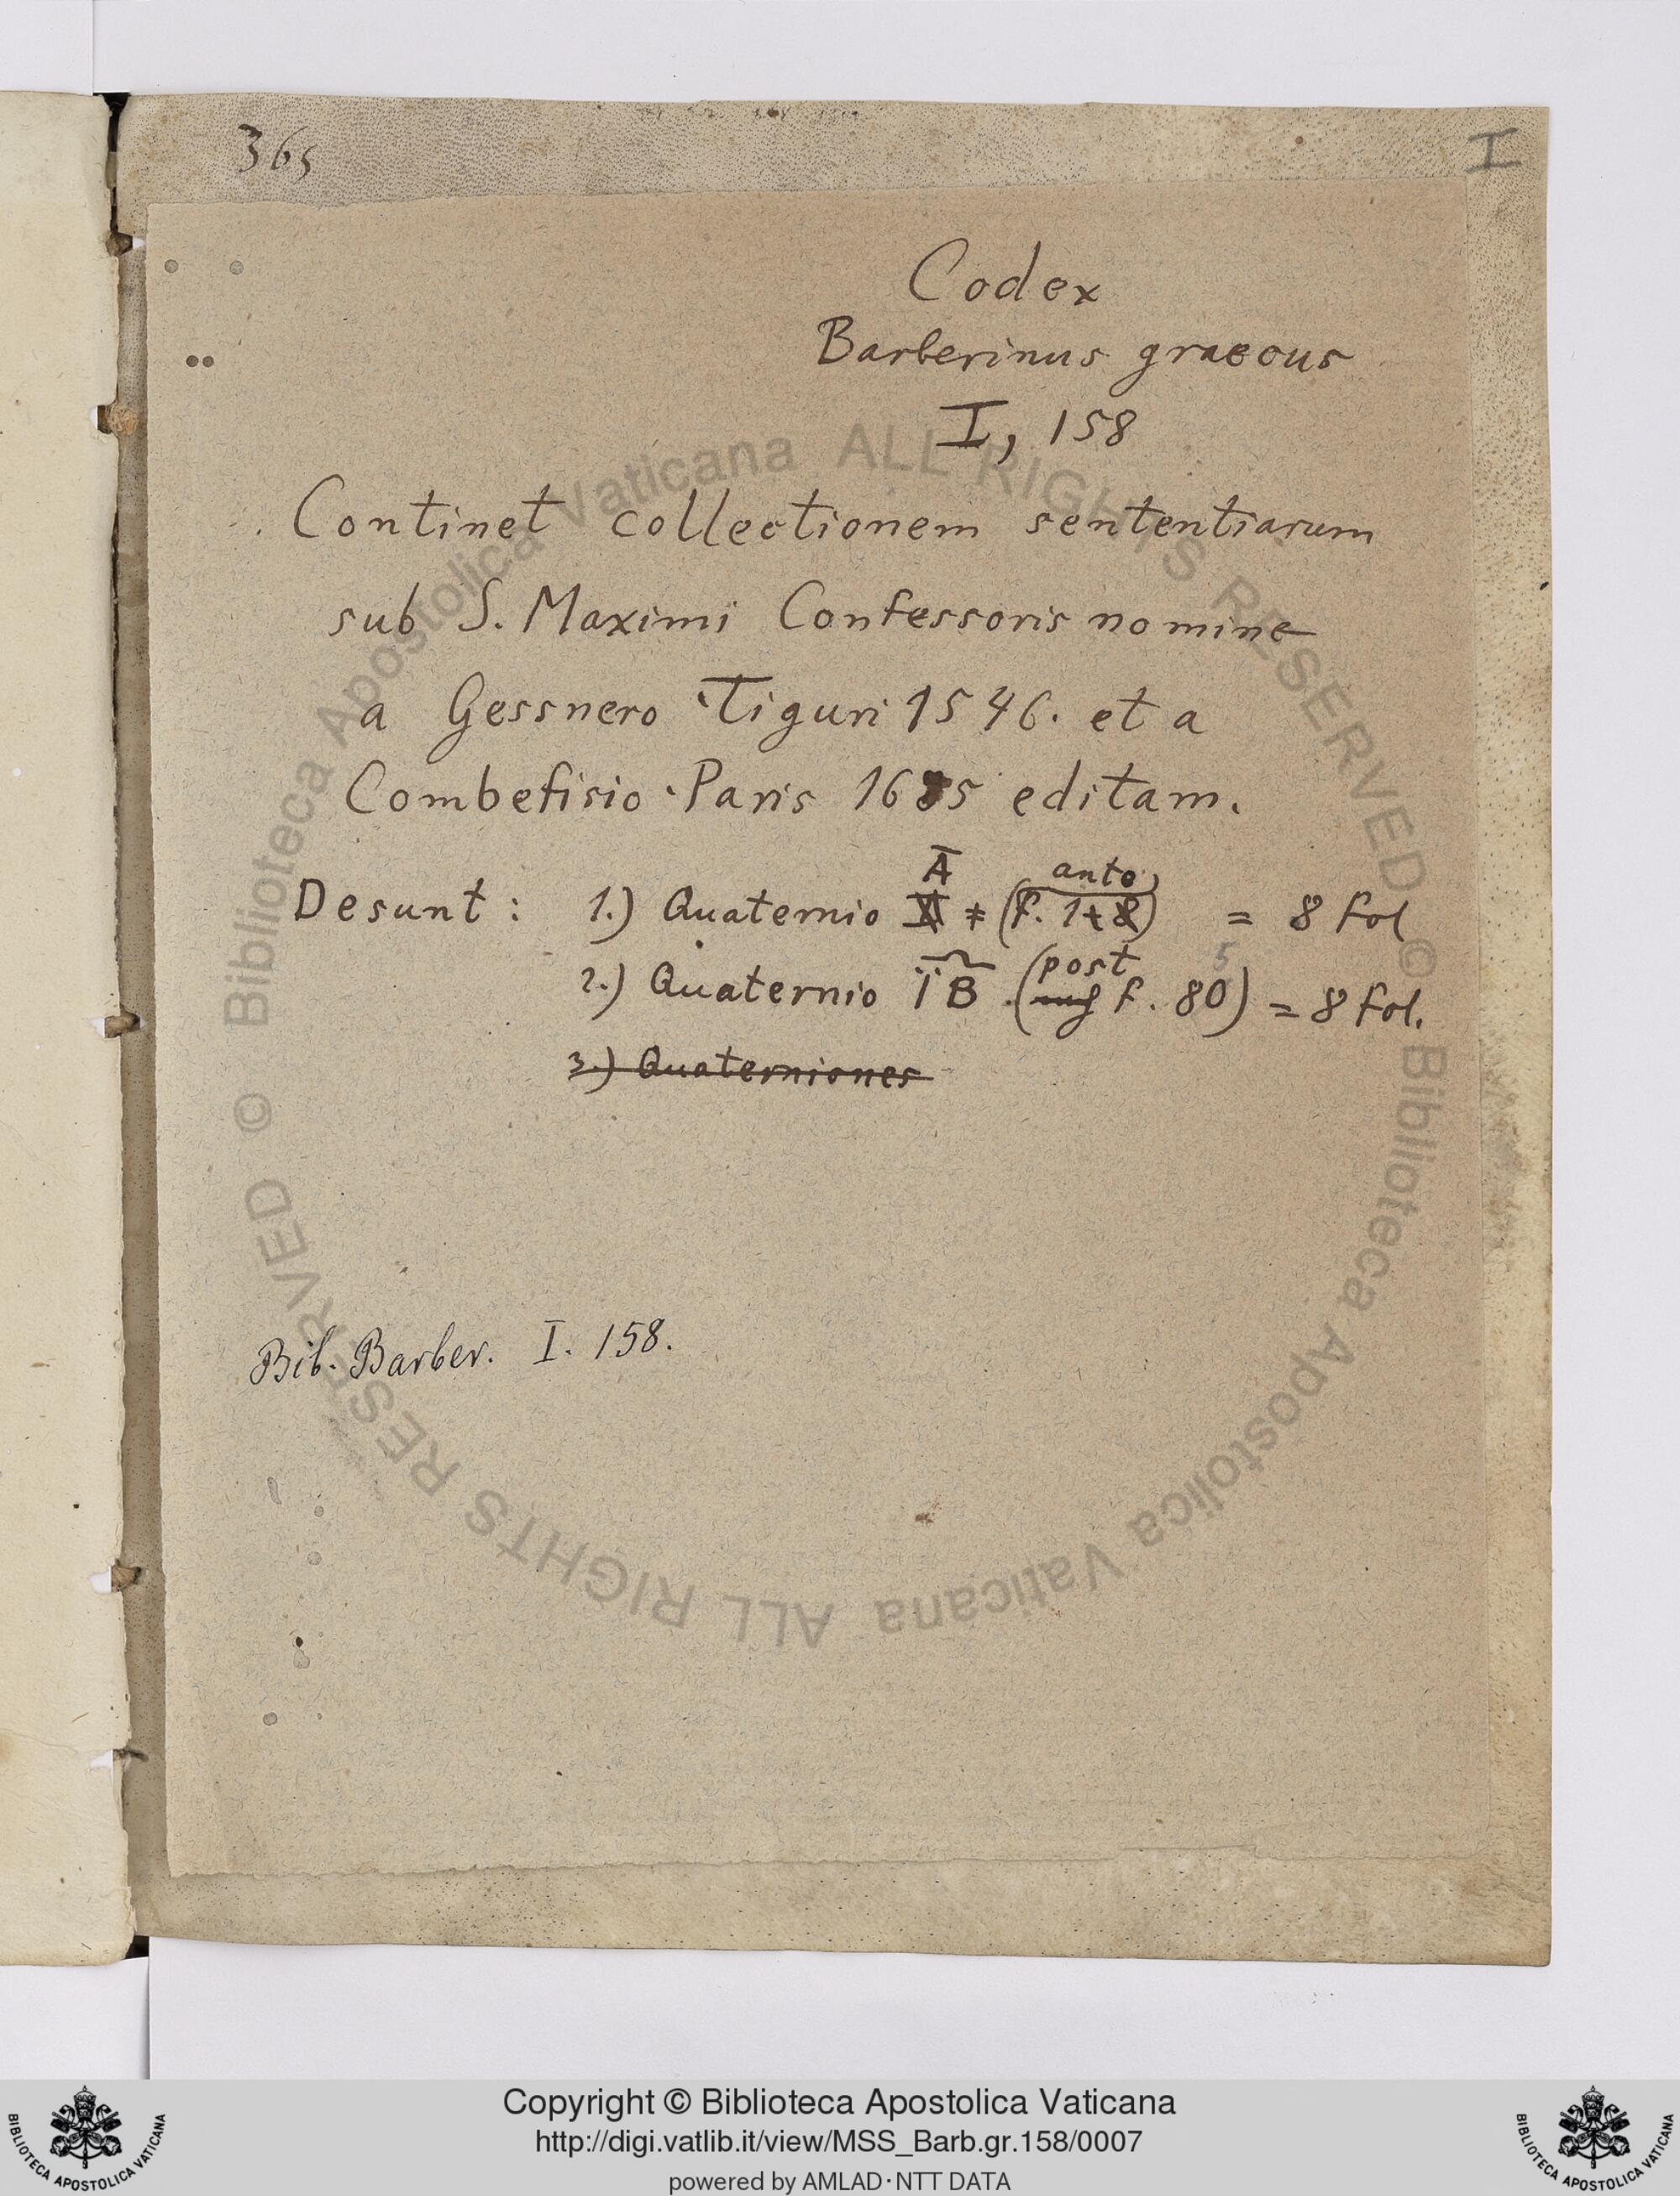 365
I
Codex
Barberinus graecus
I, 158
Continet collectionem sententiarum
sub S. Maximi Confessoris nomine
a Gessnero Tiguri 1546. et a
Combefisio Paris 1675 editam.
Desunt: 1.) Quaternio Ā (ante f. 1) = 8 fol
2.) Quaternio ΪΒ (post f. 80) = 8 fol.
5
3.) Quaterniones
Bib. Barber. I. 158.
© Biblioteca Apostolica Vaticana ALL RIGHTS RESERVED © Biblioteca Apostolica Vaticana ALL RIGHTS RESERVED
Copyright © Biblioteca Apostolica Vaticana
http://digi.vatlib.it/view/MSS_Barb.gr.158/0007
powered by AMLAD·NTT DATA
BIBLIOTECA APOSTOLICA VATICANA
BIBLIOTECA APOSTOLICA VATICANA